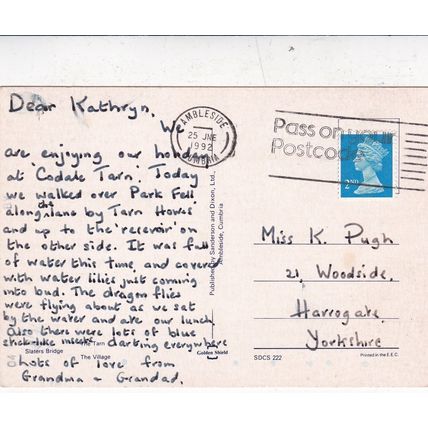 Dear Kathryn,
We
are enjoying our
at Codale Tarn. Today
we walked over Park Fell
along the lane by Tarn Hows
and up to the 'reservoir' on
the other side. It was full
of water this time and covered
with water lilies just coming
into bud. The dragon flies
were flying about as we sat
by the water and ate our lunch
Also there were lots of blue
stick-like insects darting everywhere
Lots of love from
Grandma & Grandad.
The Tarn
Slaters Bridge
The Village
Golden Shield
Published by Sanderson and Dixon, Ltd.,
Ambleside, Cumbria
AMBLESIDE
25 JNE
1992
CUMBRIA
Pass on your
Postcode
2ND
Miss K. Pugh
21, Woodside,
Harrogate,
Yorkshire
SDCS 222
Printed in the E.E.C.